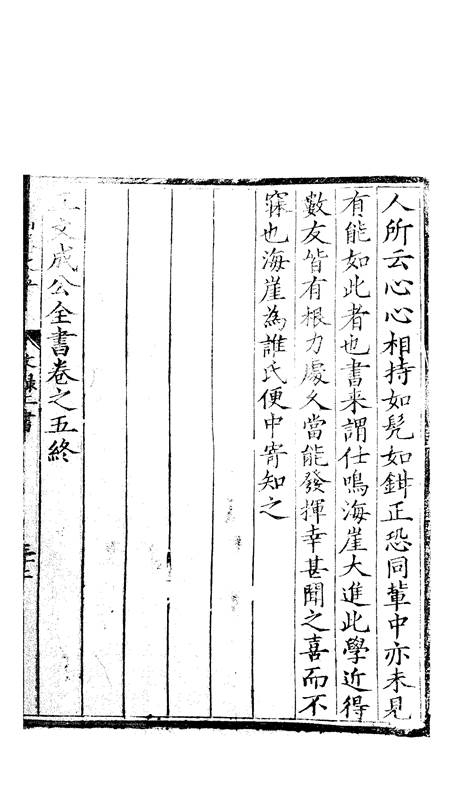 人所云心心相持如髡如鉗正恐同輩中亦未見
有能如此者也書来謂仕鳴海崖大進此學近得
數友皆有根力處久當能發揮幸甚聞之喜而不
寐也海崖為誰氏便中寄知之
文成公全書卷之五終